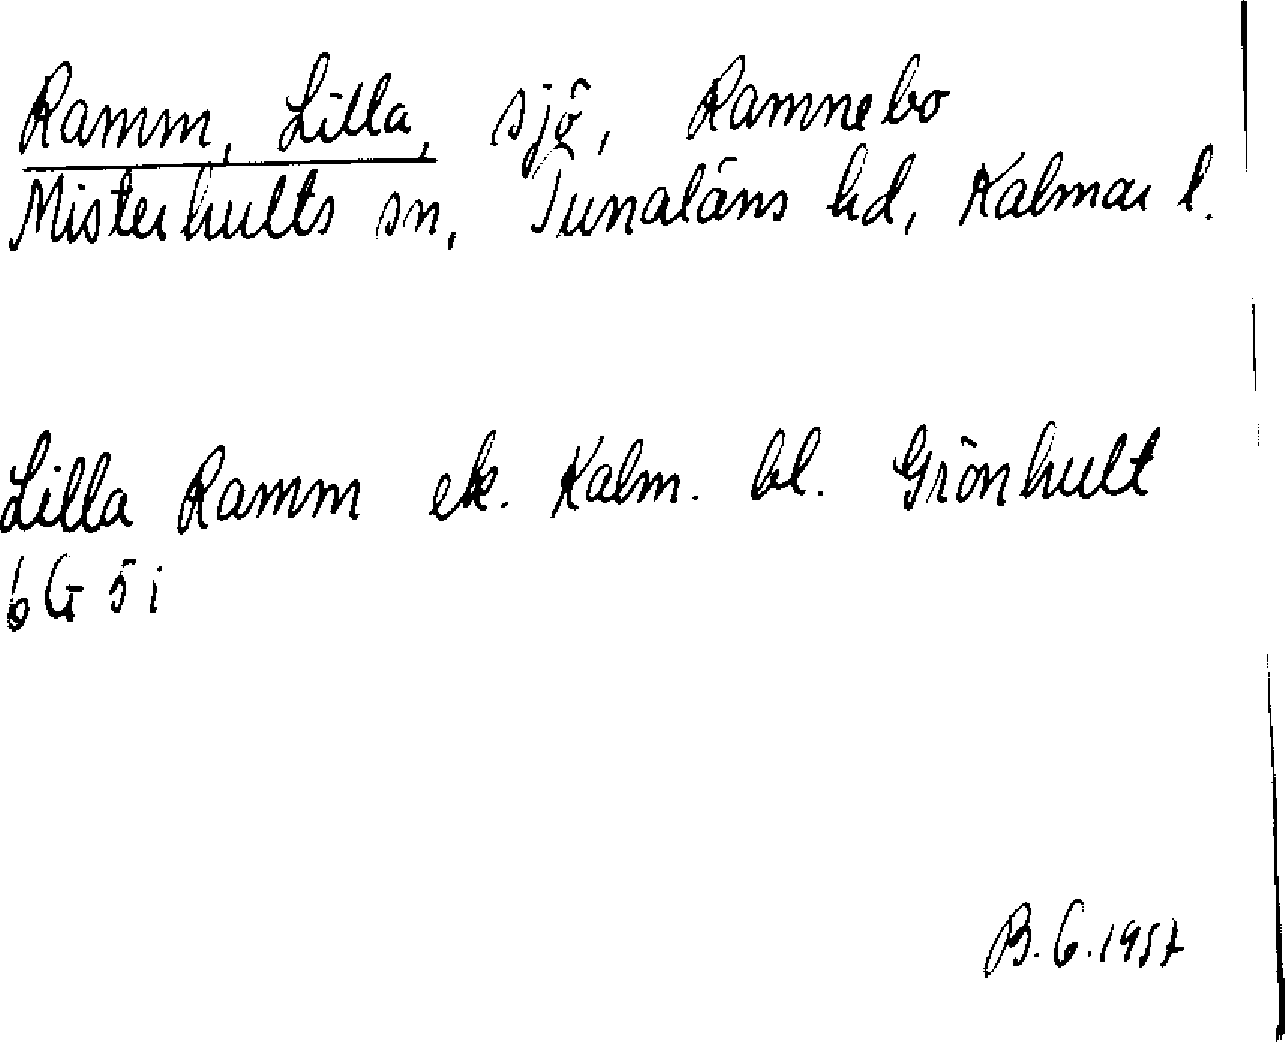 Ramm, Lilla, sjö, Ramnebo
Misterhults sn, Tunaläns hd, Kalmar l.
Lilla Ramm ek. Kalm. bl. Grönhult
6G 5i
B.G. 1957